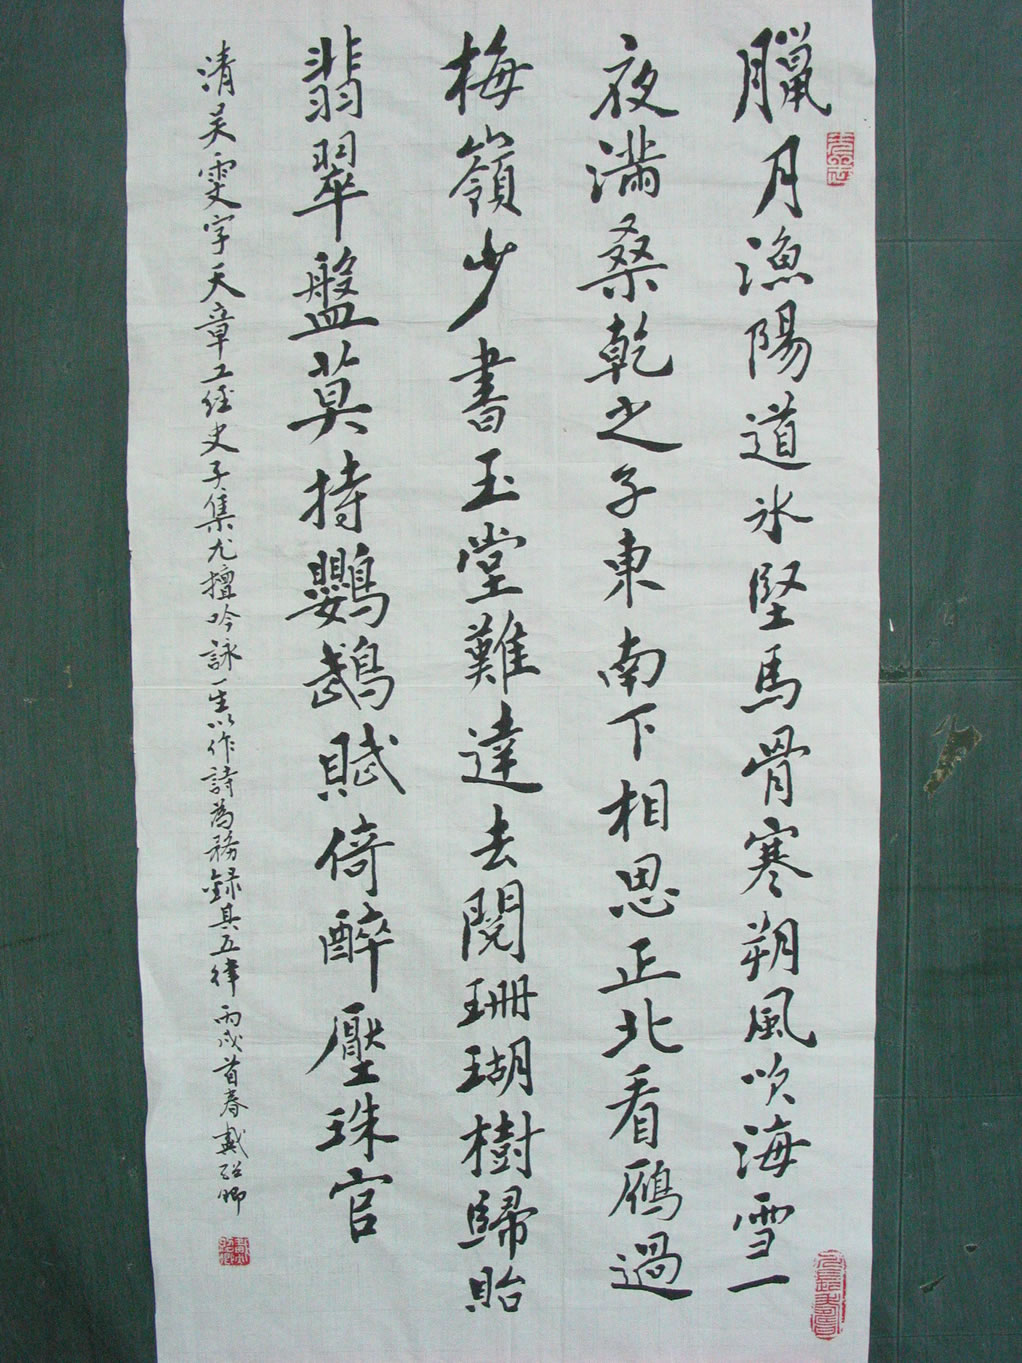 臘月漁陽道氷堅馬骨寒朔風吹海雪一
夜满桑乾之子東南下相思正北看鴈過
梅嶺少書玉堂難達去閱珊瑚樹歸貽
翡翠盤莫持鸚鵡賦倚醉壓珠官
清吴雯字天章工經史子集尤擅吟詠一生以作詩為務録其五律丙戌首春戴